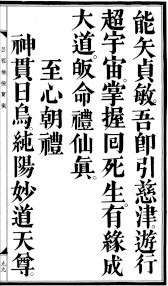 能矢貞敏吾卽引慈津遊行
超宇宙。掌握囘死生。有緣成
大道。皈命禮仙眞。
至心朝禮
神貫日烏。純陽妙道天尊。